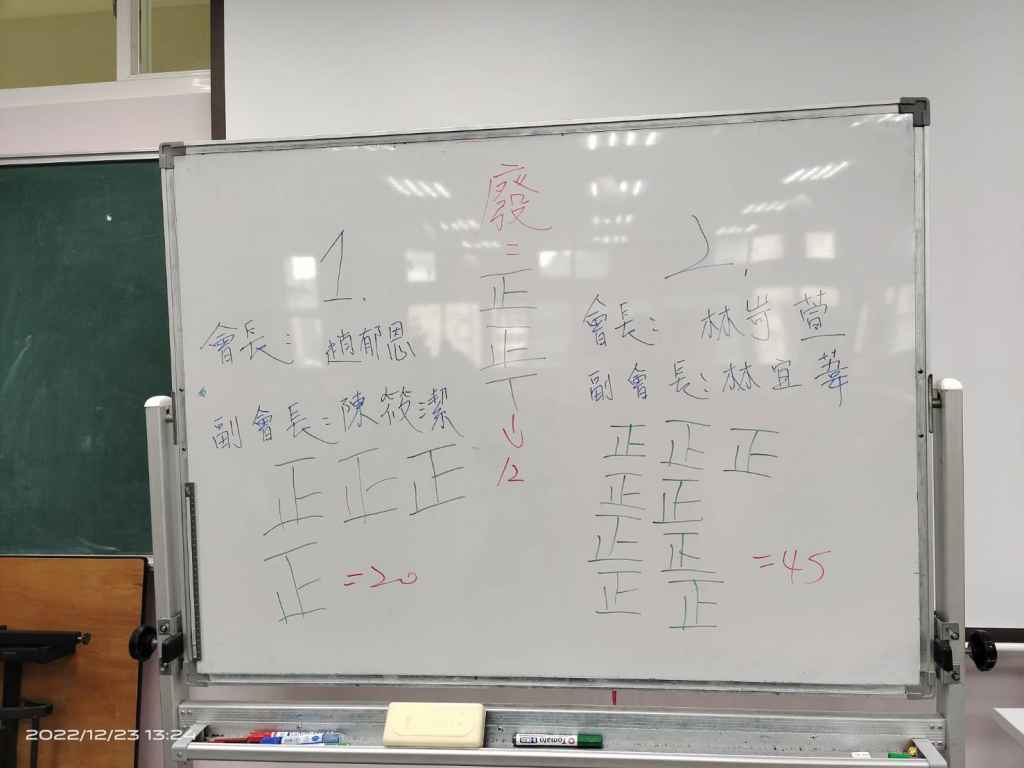 廢=
正
正
丅
↓
12
1.
會長:趙郁恩
副會長:陳筱潔
正正正
正 =20
2.
會長:林岢萱
副會長:林宜蓁
正正正
正正
正正 =45
正正
2022/12/23 13:24
Tomato